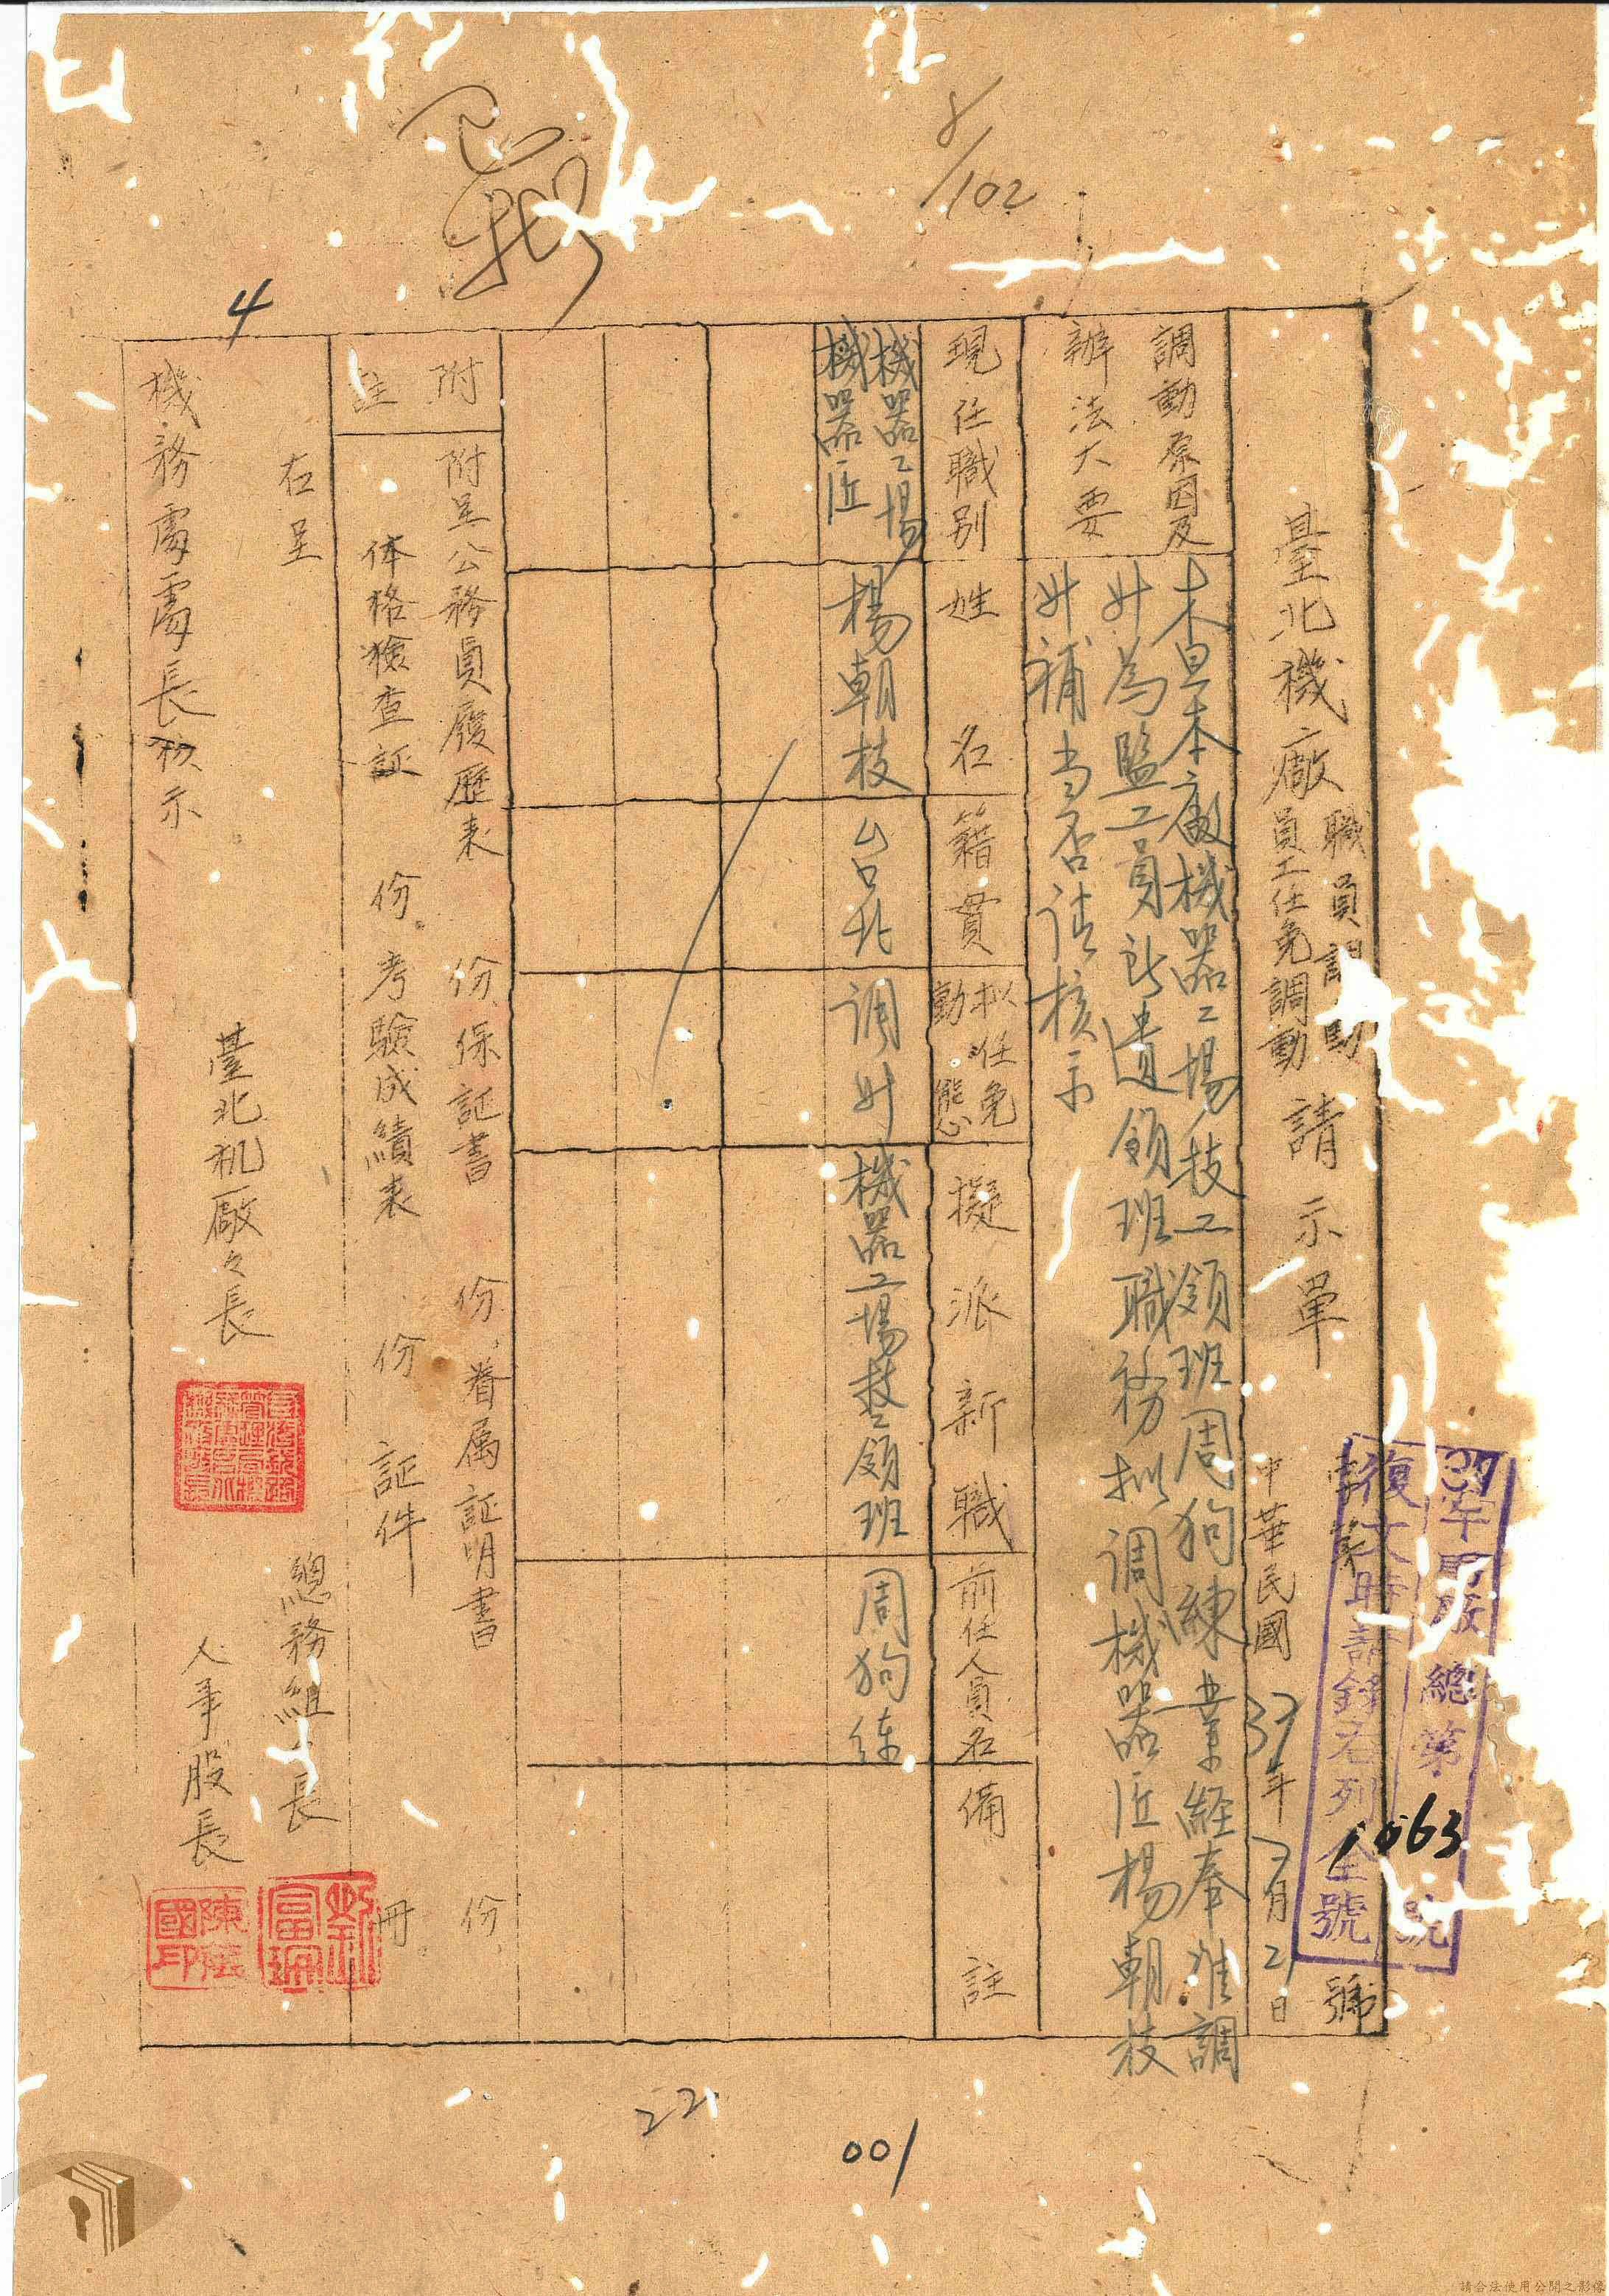 8/102
臺北機廠職員調動員工任免調動請示單
字第 號
37年 廠總第1063號
復文時請錄右列全號
中華民國37年7月21日
調動原因及
辦法大要
木具本廠機器工場技工領班周狗練業經奉准調
升為監工員所遺領班職務拟调機器匠楊朝枝
升補当否请核示
現任職別
姓名
籍貫
拟任免
動態
擬派新職
前任人員名
備註
機器工場
機器匠
楊朝枝
台北
调升
機器工場技工領班
周狗练
附註
附呈公務員履歷表 份、保証書 份、眷属証明書 份、
体格檢查証 份。考驗成績表 份 証件 冊。
右呈
機務處處長核示
臺北机廠々長
總務組長
人事股長
陳
國印
劉富
4
22
001
請合法使用公開之影像